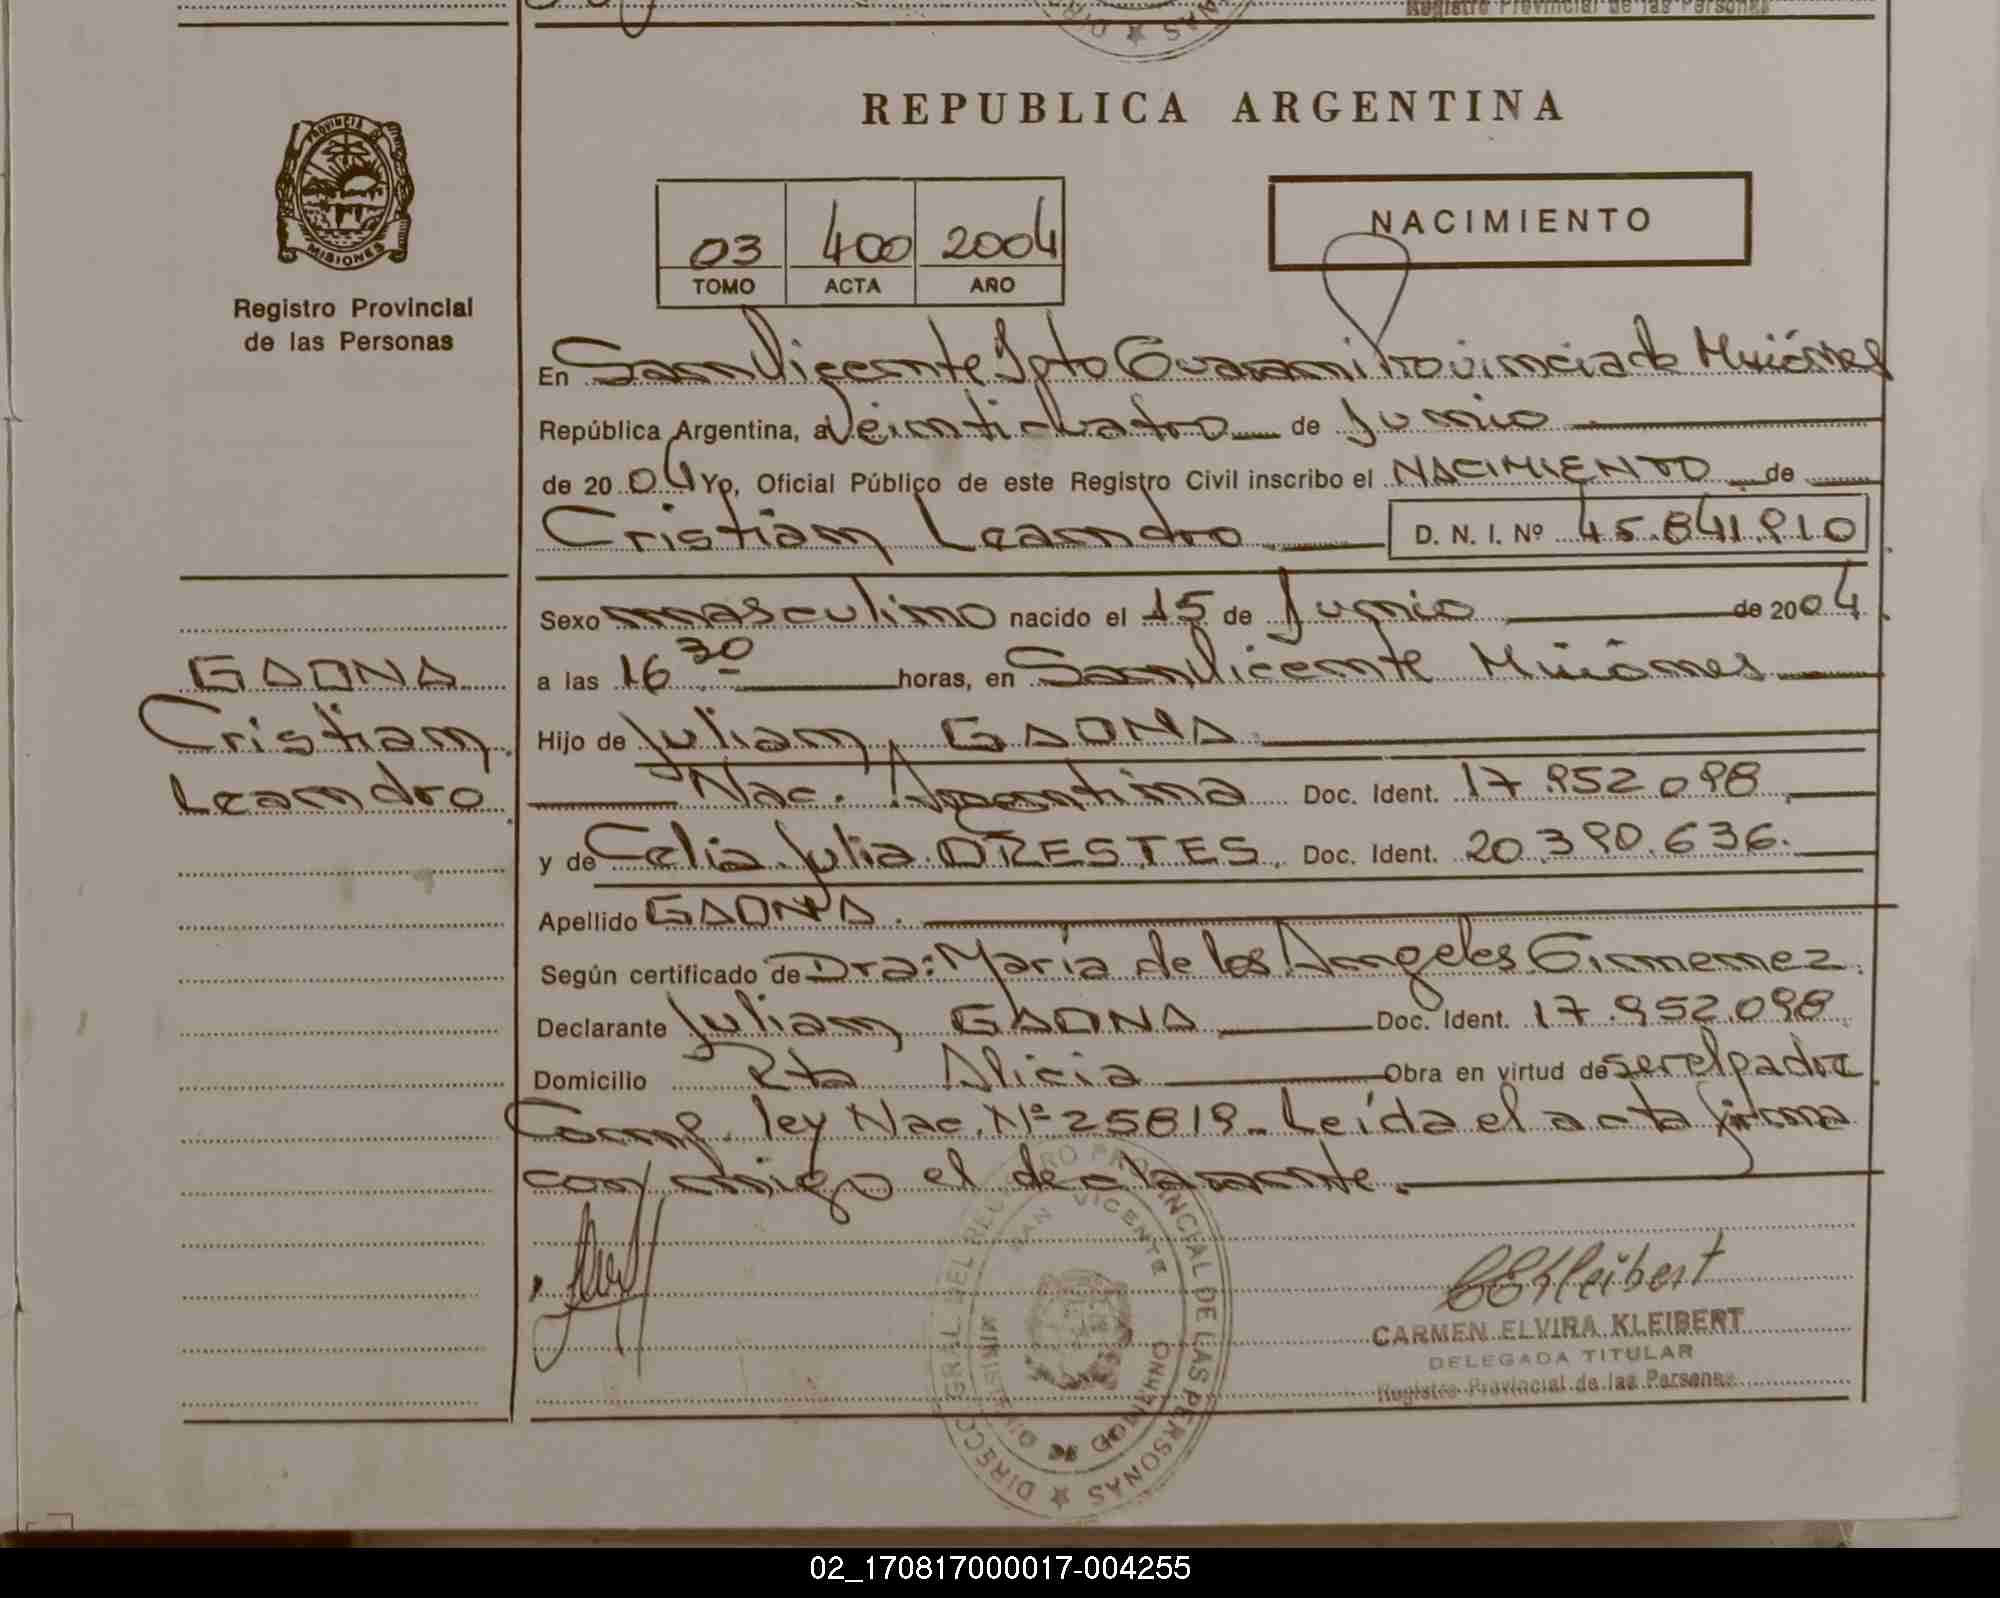 Registro Provincial de las Personas
REPUBLICA ARGENTINA
PROVINCIA DE
MISIONES
Registro Provincial
de las Personas
03 400 2004
TOMO ACTA AÑO
NACIMIENTO
En San Vicente Dpto Guarani Provincia de Misiones
República Argentina, a Veinticuatro de Junio
de 20 04 Yo, Oficial Público de este Registro Civil inscribo el NACIMIENTO de
Cristian Leandro D. N. I. Nº 45.841.910
Sexo masculino nacido el 15 de Junio de 2004
a las 16 30 horas, en San Vicente Misiones
GAONA
Cristian
Leandro
Hijo de Julian GAONA
Nac. Argentina Doc. Ident. 17.952.098
y de Celia Julia ORESTES Doc. Ident. 20.390.636.
Apellido GAONA.
Según certificado de Dra: María de los Angeles Gimenez.
Declarante Julian GAONA Doc. Ident. 17.952.098
Domicilio Rta Alicia Obra en virtud de ser el padre
Comp. ley Nac. Nº 25819. Leída el acta firma
conmigo el declarante.
DIRECC. GRAL. DEL REGISTRO PROVINCIAL DE LAS PERSONAS
SAN VICENTE
MINISTERIO DE GOBIERNO
CEKleibert
CARMEN ELVIRA KLEIBERT
DELEGADA TITULAR
Registro Provincial de las Personas
02_170817000017-004255